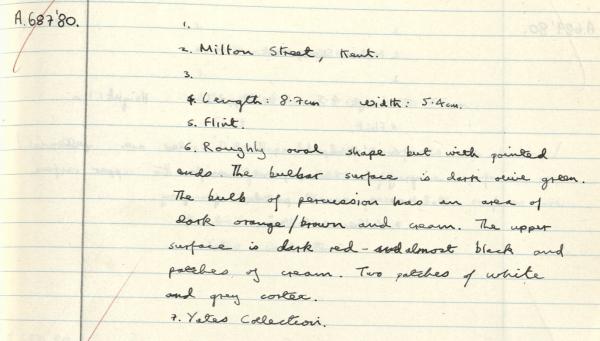 A.687'80.
1.
2. Milton Street, Kent.
3.
4. Length: 8.7cm width: 5.4cm.
5. Flint.
6. Roughly oval shape but with pointed
ends. The bulbar surface is dark olive green.
The bulb of percussion has an area of
dark orange/brown and cream. The upper
surface is dark red - almost black and
patches of cream. Two patches of white
and grey cortex.
7. Yates Collection.